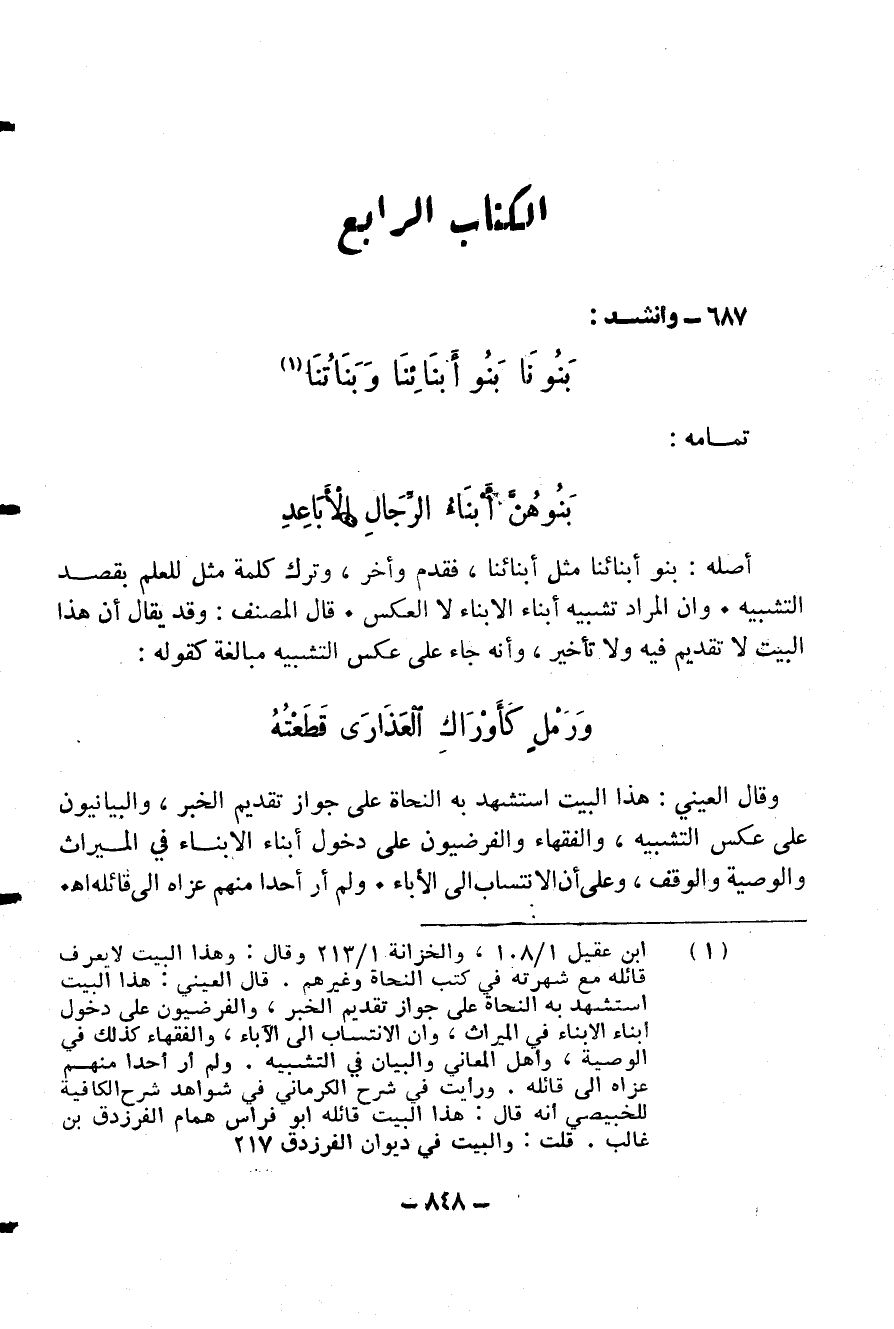 الكتاب الرابع
٦٨٧ ــ وأنشــد :
بَنُو نَا بَنُو أَبنَائِنَا وَبَنَاتُنَا (١)
تمــامه :
بَنُوهُنَّ أَبْنَاءُ الرِّجَالِ الْأَبَاعِدِ
أصله : بنو أبنائنا مثل أبنائنا ، فقدم وأخر ، وترك كلمة مثل للعلم بقصــد
التشبيه • وان المراد تشبيه أبناء الابناء لا العكس • قال المصنف : وقد يقال أن هذا
البيت لا تقديم فيه ولا تأخير ، وأنه جاء على عكس التشبيه مبالغة كقوله :
وَرَمْلٍ كَأَوْرَاكِ العَذَارَى قَطَعْتُهُ
وقال العيني : هذا البيت استشهد به النحاة على جواز تقديم الخبر ، والبيانيون
على عكس التشبيه ، والفقهاء والفرضيون على دخول أبناء الابنــاء في المــيراث
والوصية والوقف ، وعلى أن الانتساب الى الأباء • ولم أر أحدا منهم عزاه الى قائله اهـ•
(١) ابن عقيل ١٠٨/١ ، والخزانة ٢١٣/١ وقال : وهذا البيت لايعرف
قائله مع شهرته في كتب النحاة وغيرهم . قال العيني : هذا البيت
استشهد به النحاة على جواز تقديم الخبر ، والفرضيون على دخول
ابناء الابناء في الميراث ، وان الانتساب الى الآباء ، والفقهاء كذلك في
الوصية ، وأهل المعاني والبيان في التشبيه . ولم أر أحدا منهــم
عزاه الى قائله . ورأيت في شرح الكرماني في شواهد شرح الكافية
للخبيصي أنه قال : هذا البيت قائله ابو فراس همام الفرزدق بن
غالب . قلت : والبيت في ديوان الفرزدق ٢١٧
ــ ٨٤٨ ــ